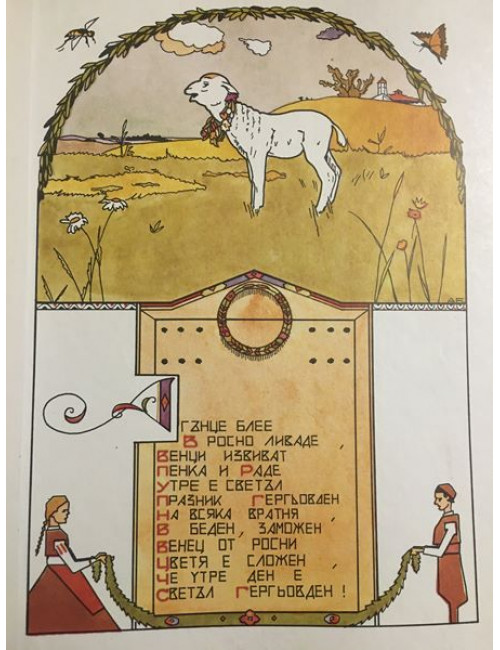 АГЪНЦЕ БЛЕЕ
В РОСНО ЛИВАДЕ ,
ВЕНЦИ ИЗВИВАТ
ПЕНКА И РАДЕ
УТРЕ Е СВЕТЪЛ
ПРАЗНИК ГЕРГЬОВДЕН
НА ВСЯКА ВРАТНЯ ,
В БЕДЕН, ЗАМОЖЕН
ВЕНЕЦ ОТ РОСНИ
ЦВЕТЯ Е СЛОЖЕН ,
ЧЕ УТРЕ ДЕН Е
СВЕТЪЛ ГЕРГЬОВДЕН !